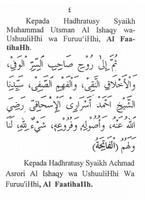 ٤
Kepada Hadhratusy Syaikh
Muhammad Utsman Al Ishaqy wa-
UshuuliHhi wa Furuu'iHhi, Al Faa-
tihaHh.
ثُمَّ إِلَى رُوْحِ صَاحِبِ السِّيَرِ الْوَفِيِّ،
وَالْأَخْلَاقِ النَّقِيِّ، وَالْفَهِيْمِ اللَّقِيْفِ، سَيِّدِنَا
الشَّيْخِ أَحْمَدَ أَسْرَارِيْ الْإِسْحَاقِيِّ رَضِيَ
اللهُ عَنْهُ، وَأُصُوْلِهِ وَفُرُوْعِهِ، شَيْءٌ لِلّٰهِ، لَنَا
وَلَهُمُ (الْفَاتِحَةْ)
Kepada Hadhratusy Syaikh Achmad
Asrori Al Ishaqy wa UshuuliHhi Wa
Furuu'iHhi, Al FaatihaHh.